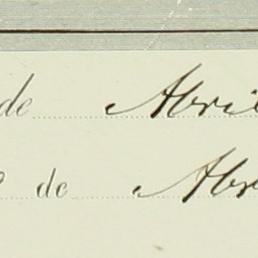 de Abril
de Abr